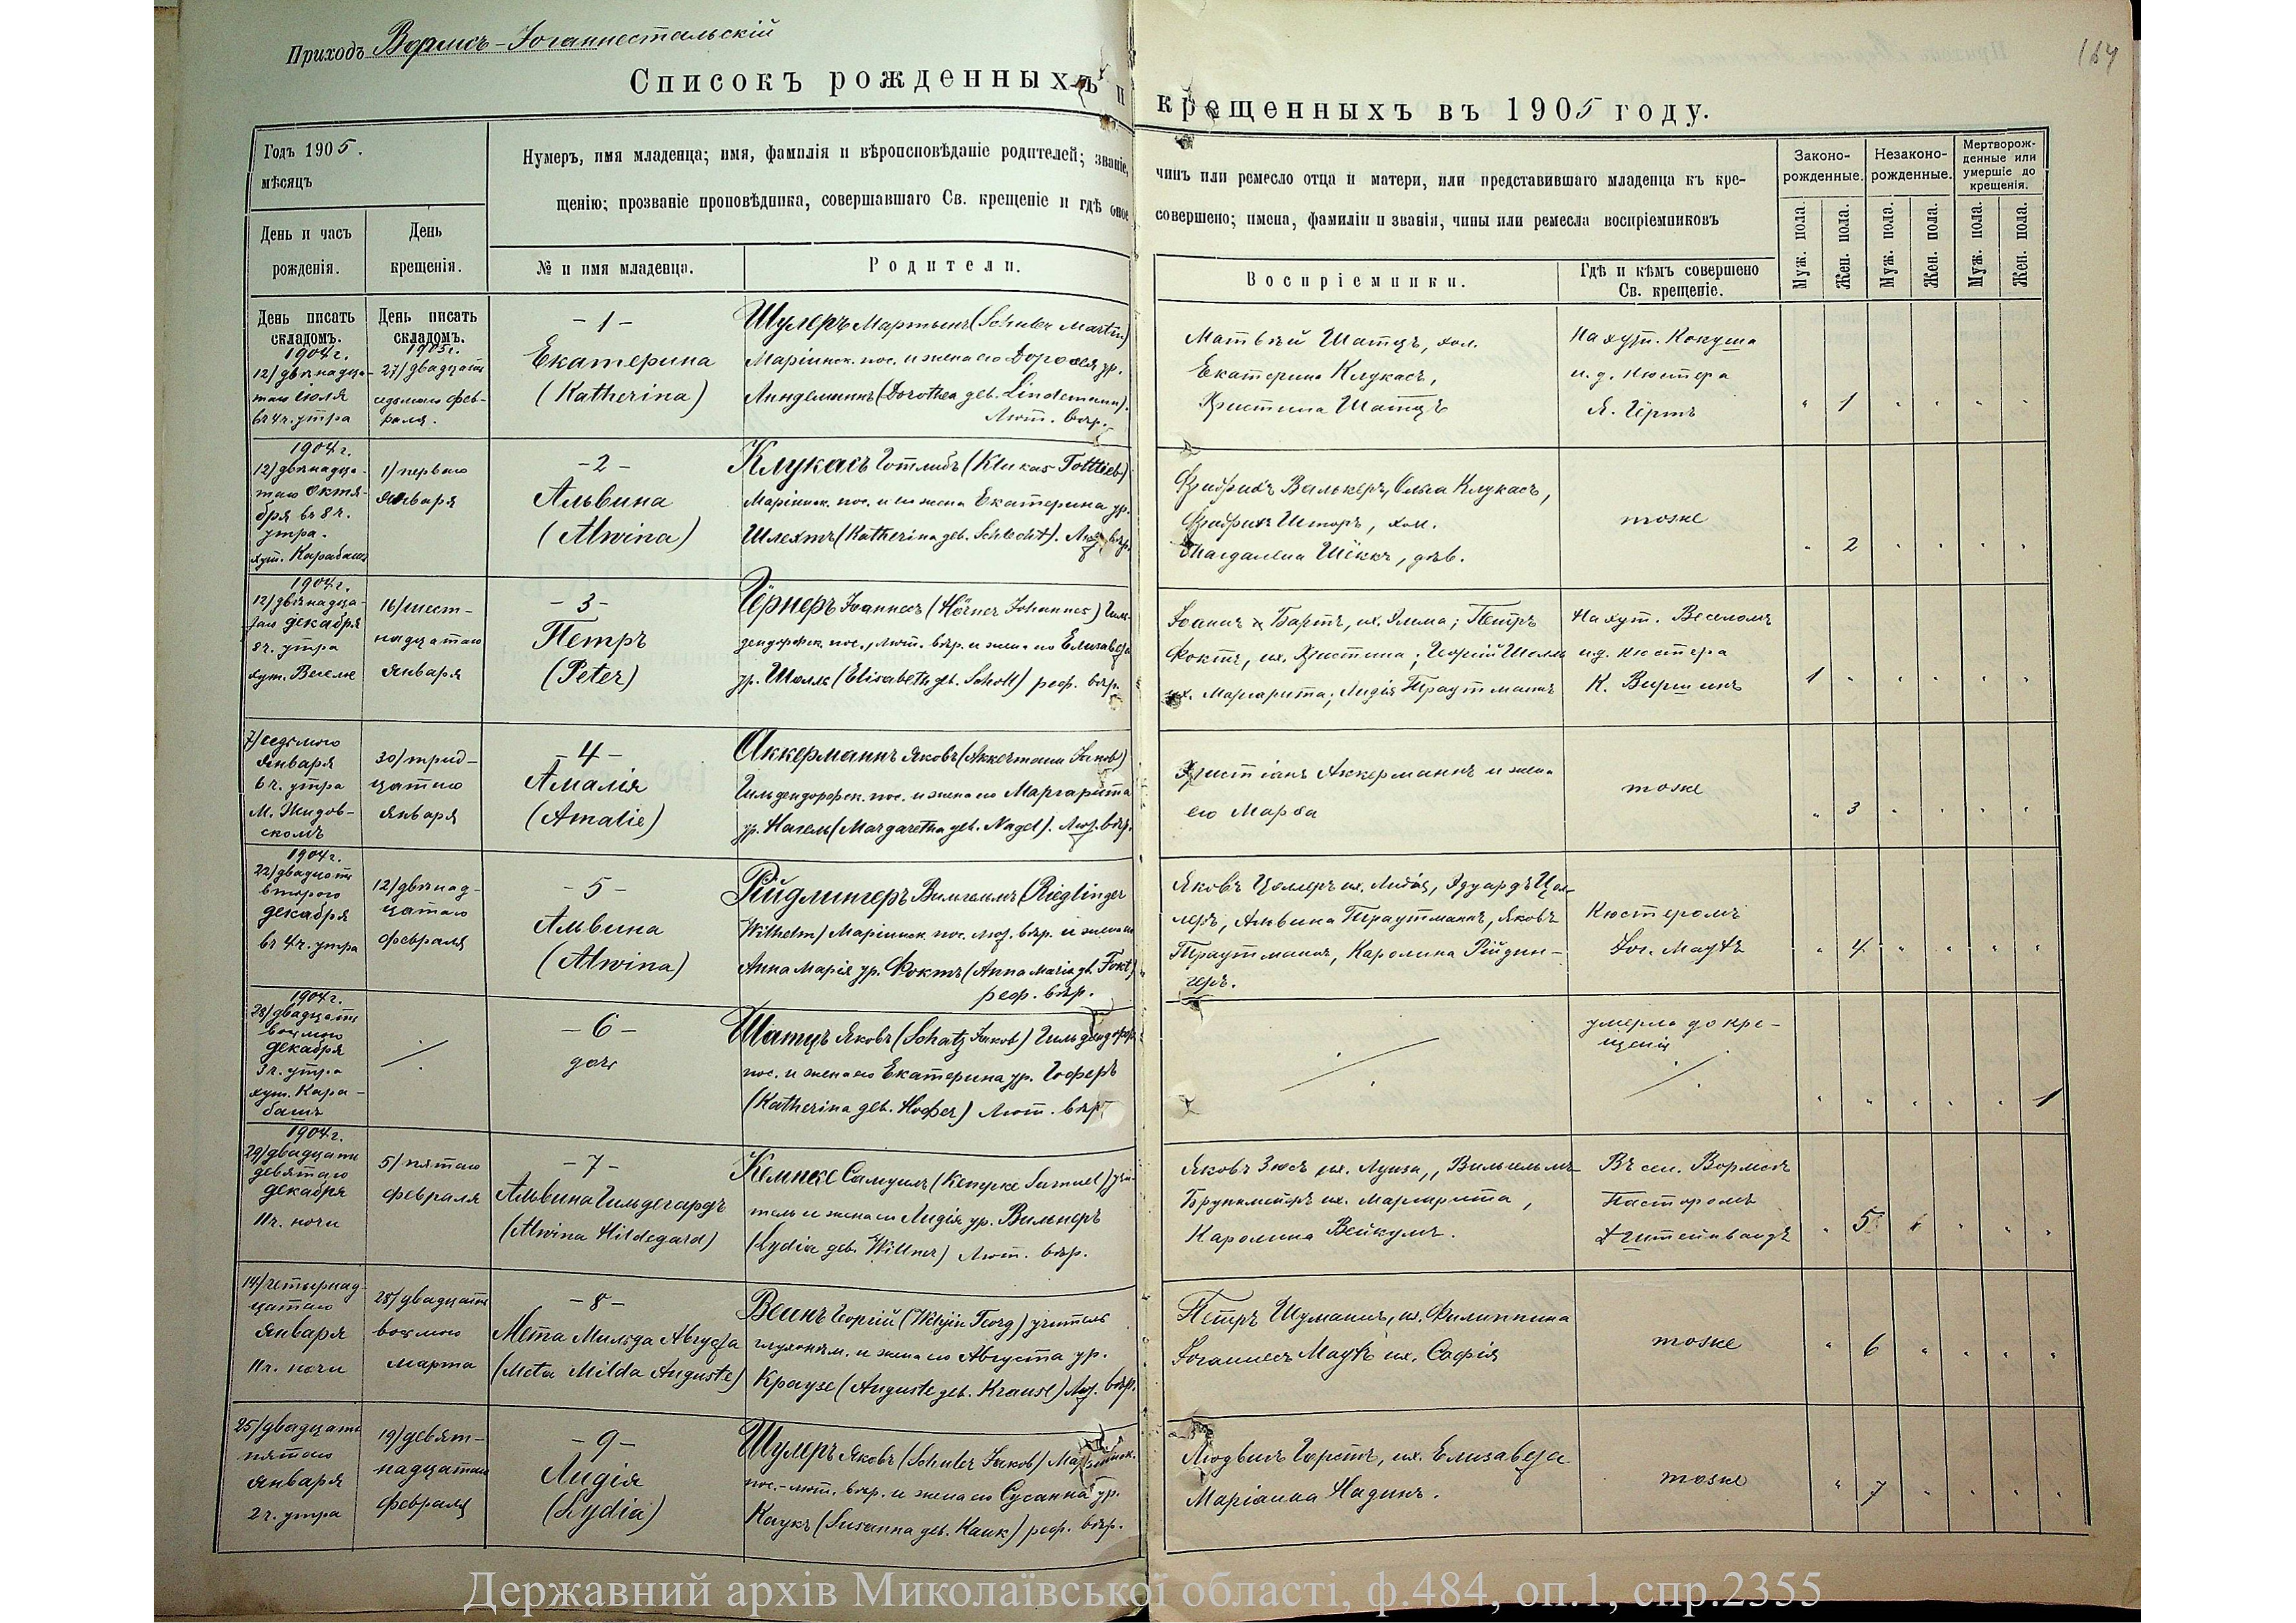 Приходъ Вормсъ-Іоганнестальскій
164
Списокъ рожденныхъ и крещенныхъ въ 1905 году.
Годъ 1905.
мѣсяцъ
Нумеръ, имя младенца; имя, фамилія и вѣроисповѣданіе родителей; званіе, чинъ или ремесло отца и матери, или представившаго младенца къ кре-
щенію; прозваніе проповѣдника, совершавшаго Св. крещеніе и гдѣ оное совершено; имена, фамиліи и званія, чины или ремесла воспріемниковъ
Законо-
рожденные.
Незаконо-
рожденные.
Мертворож-
денные или
умершіе до
крещенія.
День и часъ
рожденія.
День
крещенія.
№ и имя младенца.
Родители.
Воспріемники.
Гдѣ и кѣмъ совершено
Св. крещеніе.
Муж. пола.
Жен. пола.
Муж. пола.
Жен. пола.
Муж. пола.
Жен. пола.
День писать
складомъ.
1904 г.
12/двѣнадца-
таго іюля
въ 4 ч. утра
День писать
складомъ.
1905 г.
27/двадцать
седьмого фев-
раля.
-1-
Екатерина
(Katherina)
Шулеръ Мартынъ (Schuler Martin)
Маріинск. пос. и жена его Доротея ур.
Линдеманнъ (Dorothea geb. Lindemann).
Лют. вѣр.
Матвѣй Шатцъ, хол.
Екатерина Клукасъ,
Христина Шатцъ
На хут. Кокуша
и. д. кюстера
Я. Гёртъ
1
1904 г.
12/двѣнадца-
таго октя-
бря въ 8 ч.
утра.
хут. Карабашъ
1/перваго
января
-2-
Альвина
(Alwina)
Клукасъ Готлибъ (Klukas Gottlieb)
Маріинск. пос. и его жена Екатерина ур.
Шлехтъ (Katherina geb. Schlecht). Лют. вѣр.
Фридрихъ Валькеръ, Ольга Клукасъ,
Фридрихъ Шторъ, хол.
Магдалина Шёккъ, дѣв.
тоже
2
1904 г.
12/двѣнадца-
таго декабря
8 ч. утра
хут. Веселе
16/шест-
надцатаго
января
-3-
Петръ
(Peter)
Гёрнеръ Іоаннесъ (Hörner Johannes) Гиль-
дендорфск. пос., лют. вѣр. и жена его Елизавета
ур. Шоллъ (Elisabeth geb. Scholl) реф. вѣр.
Іоаннъ Бартъ, их. Эмма; Петръ
Фоктъ, их. Христина; Георгій Шоллъ
их. Маргарита; Лидія Траутманнъ
На хут. Веселомъ
и. д. кюстера
К. Виршинъ
1
7/седьмого
января
6 ч. утра
М. Жидов-
скомъ
30/трид-
цатаго
января
-4-
Амалія
(Amalie)
Аккерманнъ Яковъ (Akkermann Jakob)
Гильдендорфск. пос. и жена его Маргарита
ур. Нагель (Margaretha geb. Nagel). Лют. вѣр.
Христіанъ Аккерманнъ и жена
его Марѳа
тоже
3
1904 г.
22/двадцать
второго
декабря
въ 4 ч. утра
12/двѣнад-
цатаго
февраля
-5-
Альвина
(Alwina)
Рійдлингеръ Вильгельмъ (Rieglinger
Wilhelm) Маріинск. пос. лют. вѣр. и жена его
Анна Марія ур. Фоктъ (Anna Maria geb. Fokt)
реф. вѣр.
Яковъ Цоллеръ их. Лидія, Эдуардъ Цол-
леръ, Альвина Траутманнъ, Яковъ
Траутманнъ, Каролина Рійдин-
геръ.
Кюстеромъ
Іог. Маутъ
4
1904 г.
28/двадцать
восьмого
декабря
3 ч. утра
хут. Кара-
башъ
-6-
дочь
Шатцъ Яковъ (Schatz Jakob) Гильдендорф.
пос. и жена его Екатерина ур. Гоферъ
(Katherina geb. Hofer) Лют. вѣр.
умерла до кре-
щенія
1
1904 г.
29/двадцать
девятаго
декабря
11 ч. ночи
5/пятаго
февраля
-7-
Альвина Гильдегардъ
(Alwina Hildegard)
Кемпке Самуилъ (Kempke Samuel) учи-
тель и жена его Лидія ур. Вильнеръ
(Lydia geb. Willner) Лют. вѣр.
Яковъ Зюсъ их. Луиза, Вильгельмъ
Брункмейеръ их. Маргарита,
Каролина Вейкумъ.
Въ сел. Вормсѣ
Пасторомъ
Штейнвандъ
5
14/четырнад-
цатаго
января
11 ч. ночи
28/двадцать
восьмого
марта
-8-
Мета Мильда Августа
(Meta Milda Auguste)
Веинъ Георгій (Wejjin Georg) учитель
глухонѣм. и жена его Августа ур.
Краузе (Auguste geb. Krause) Лют. вѣр.
Петръ Шуманнъ, их. Филиппина
Іоганнесъ Маутъ их. Софія
тоже
6
25/двадцать
пятаго
января
2 ч. утра
19/девят-
надцатаго
февраля
-9-
Лидія
(Lydia)
Шулеръ Яковъ (Schuler Jakob) Маріинск.
пос. - лют. вѣр. и жена его Сусанна ур.
Каукъ (Susanna geb. Kauk) реф. вѣр.
Людвигъ Герстъ, их. Елизавета
Маріанна Надинъ.
тоже
7
Державний архів Миколаївської області, ф.484, оп.1, спр.2355